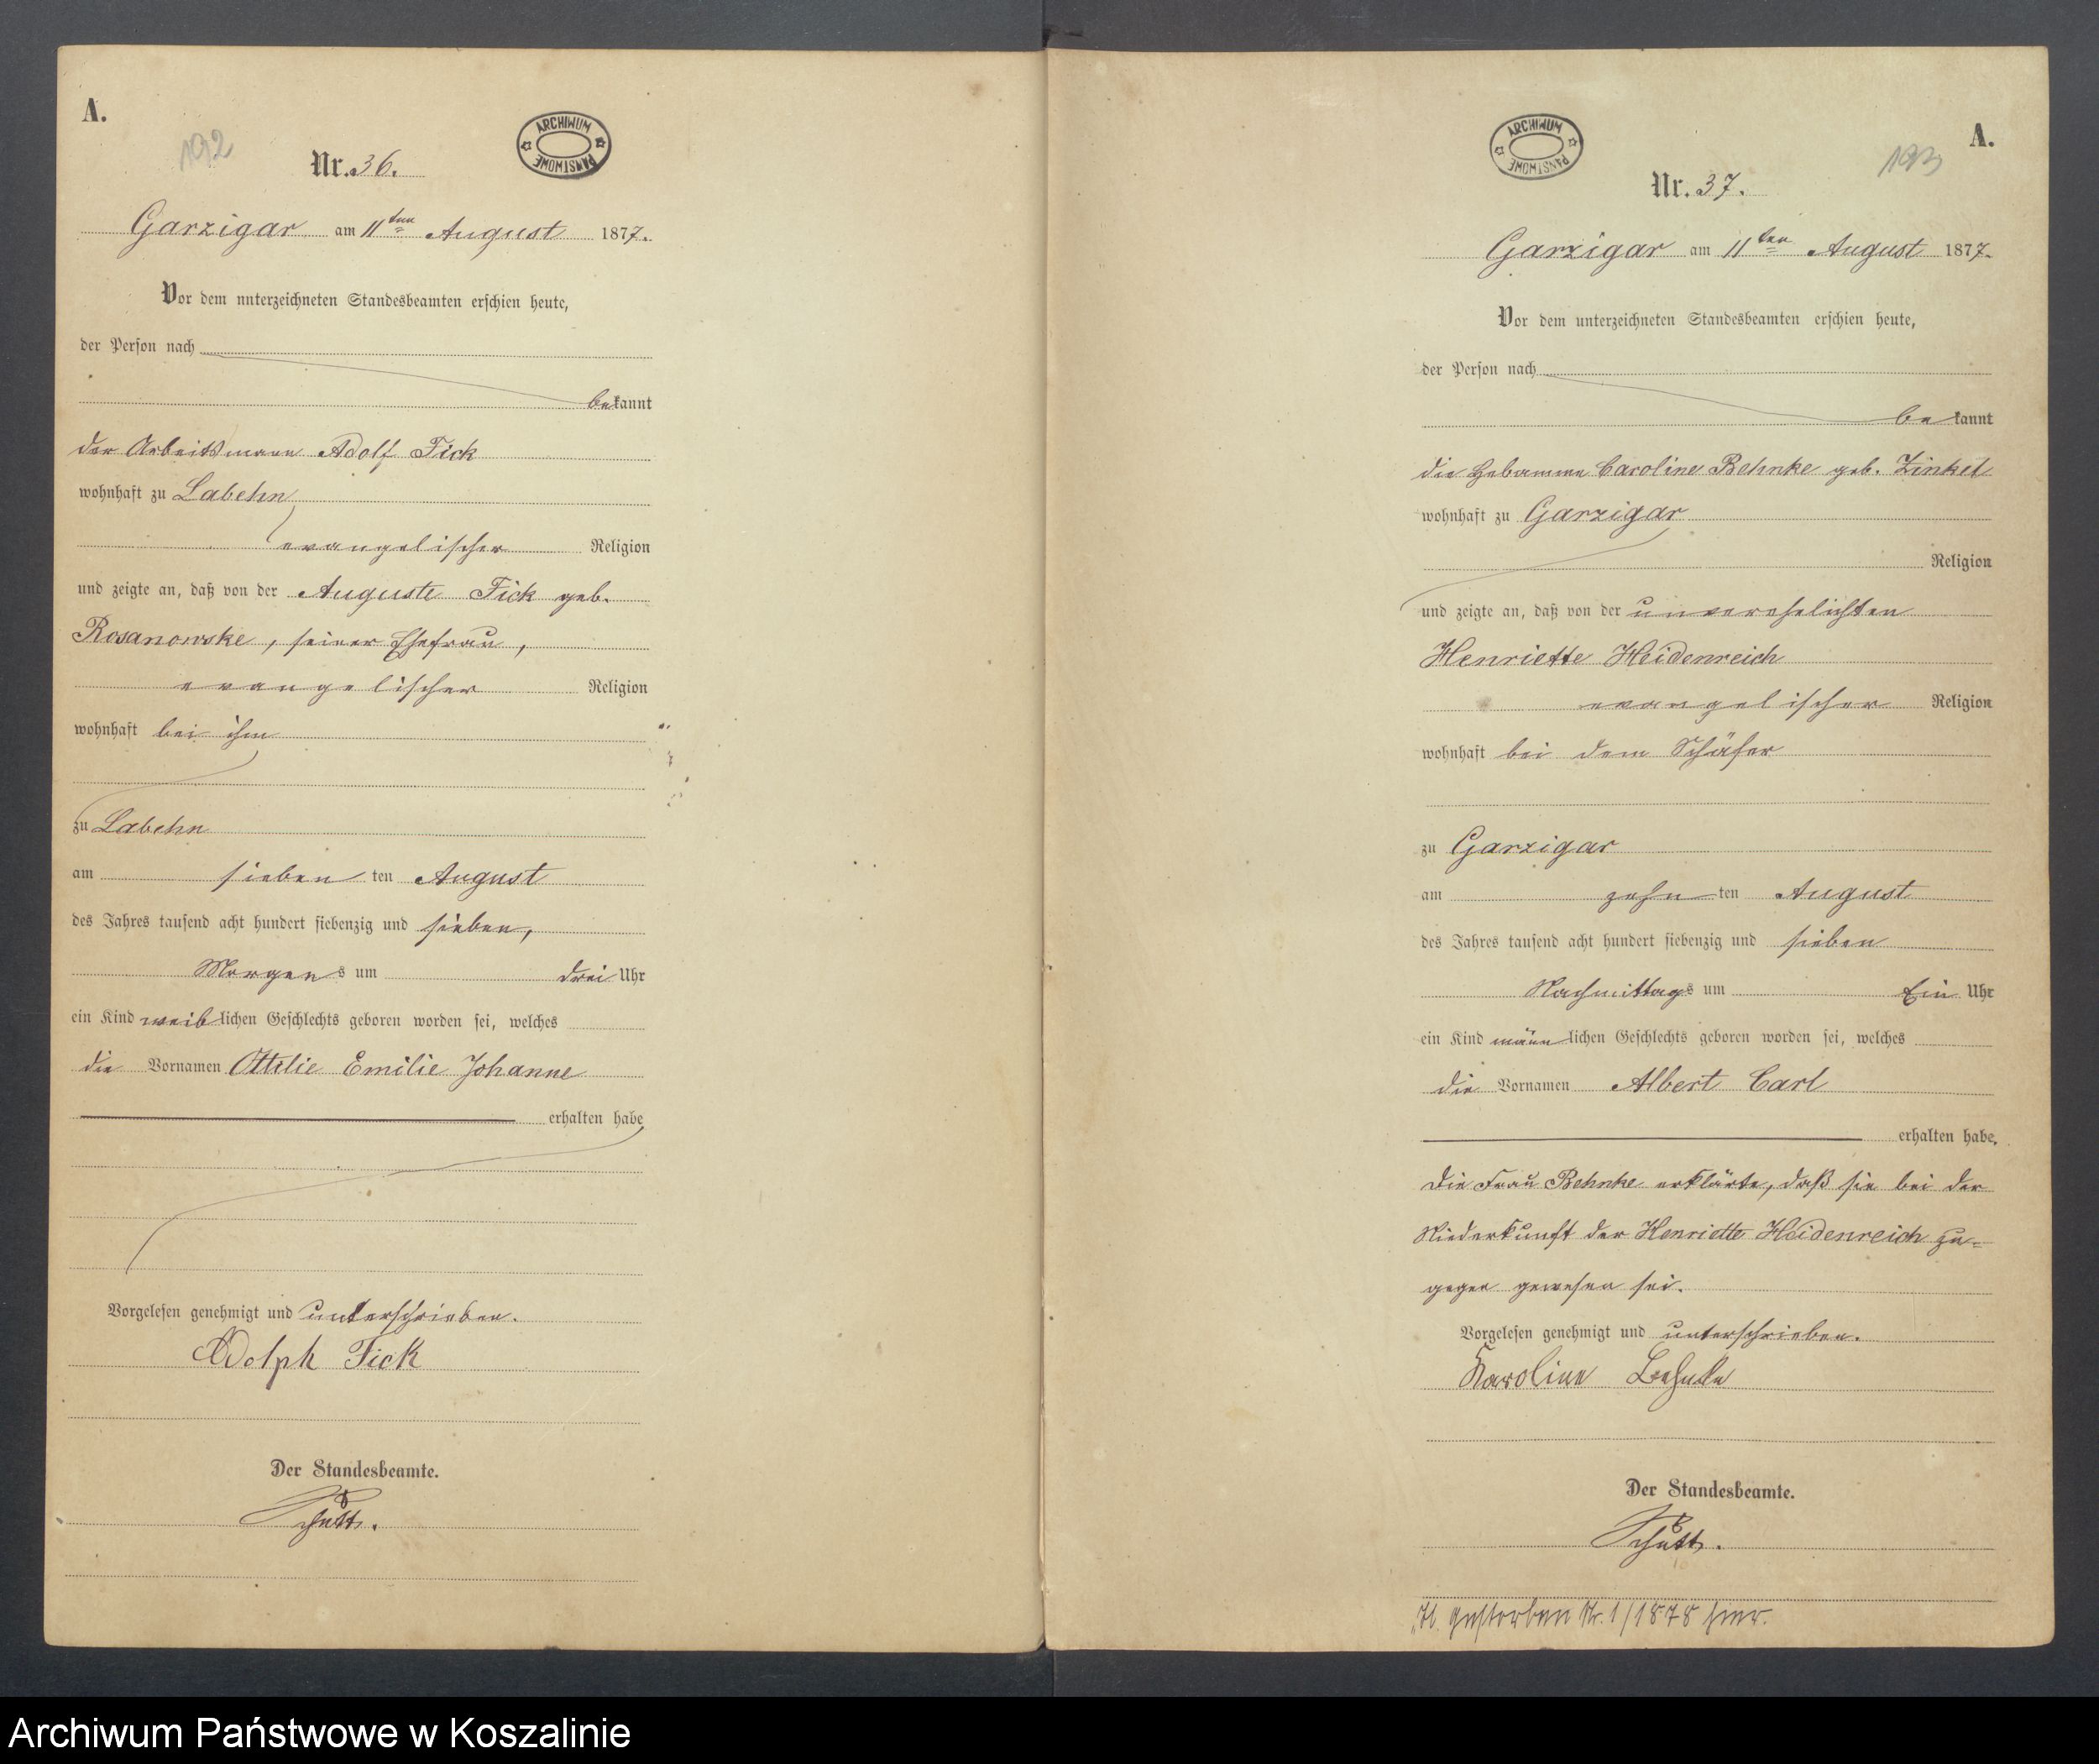 A.
192
ARCHIWUM PAŃSTWOWE
Nr. 36.
Garzigar am 11ten August 1877.
Vor dem unterzeichneten Standesbeamten erschien heute,
der Person nach
bekannt
der Arbeitsmann Adolf Fick
wohnhaft zu Labehn
evangelischer Religion
und zeigte an, daß von der Auguste Fick geb.
Rosanowske, seiner Ehefrau,
evangelischer Religion
wohnhaft bei ihm
zu Labehn
am sieben ten August
des Jahres tausend acht hundert siebenzig und sieben,
Morgens um drei Uhr
ein Kind weiblichen Geschlechts geboren worden sei, welches
die Vornamen Ottilie Emilie Johanne
erhalten habe
Vorgelesen genehmigt und unterschrieben.
Adolph Fick
Der Standesbeamte.
Schütt.
A.
193
ARCHIWUM PAŃSTWOWE
Nr. 37.
Garzigar am 11ten August 1877.
Vor dem unterzeichneten Standesbeamten erschien heute,
der Person nach
bekannt
die Hebamme Caroline Behnke geb. Zinkel
wohnhaft zu Garzigar
Religion
und zeigte an, daß von der unverehelichten
Henriette Heidenreich
evangelischer Religion
wohnhaft bei dem Schäfer
zu Garzigar
am zehn ten August
des Jahres tausend acht hundert siebenzig und sieben
Nachmittags um Ein Uhr
ein Kind männlichen Geschlechts geboren worden sei, welches
die Vornamen Albert Carl
erhalten habe.
Die Frau Behnke erklärte, daß sie bei der
Niederkunft der Henriette Heidenreich zu=
gegen gewesen sei.
Vorgelesen genehmigt und unterschrieben.
Karoline Behnke
Der Standesbeamte.
Schütt.
gestorben Nr. 1/1878 hier.
Archiwum Państwowe w Koszalinie